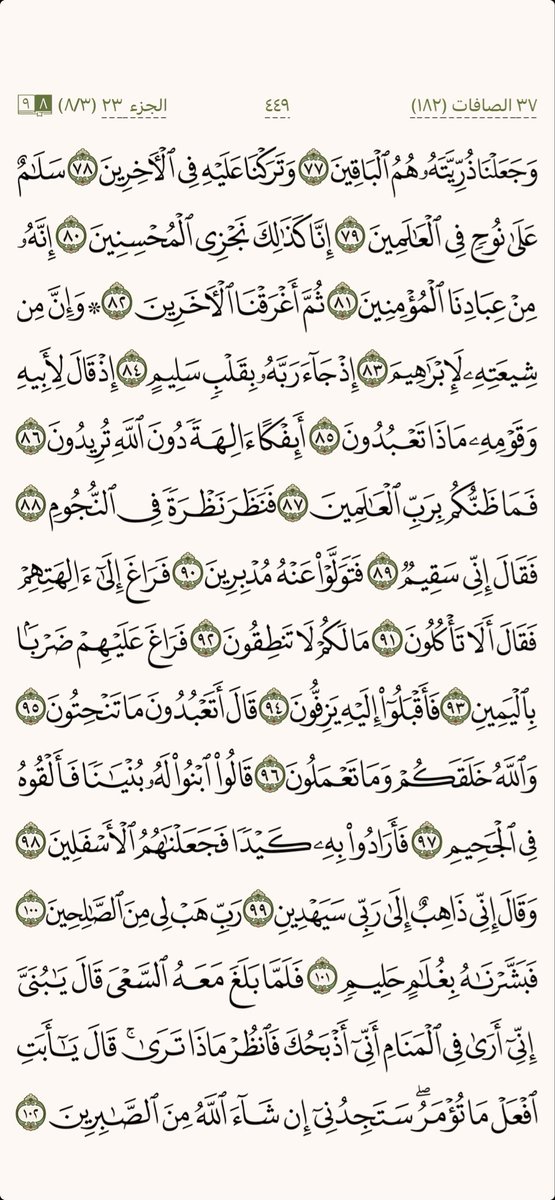 ٣٧ الصافات (١٨٢) ٤٤٩ الجزء ٢٣ (٨/٣) ٨ ٩
وَجَعَلْنَا ذُرِّيَّتَهُۥ هُمُ ٱلْبَاقِينَ ٧٧ وَتَرَكْنَا عَلَيْهِ فِى ٱلْـَٔاخِرِينَ ٧٨ سَلَـٰمٌ
عَلَىٰ نُوحٍ فِى ٱلْعَـٰلَمِينَ ٧٩ إِنَّا كَذَٰلِكَ نَجْزِى ٱلْمُحْسِنِينَ ٨٠ إِنَّهُۥ
مِنْ عِبَادِنَا ٱلْمُؤْمِنِينَ ٨١ ثُمَّ أَغْرَقْنَا ٱلْـَٔاخَرِينَ ٨٢ ۞ وَإِنَّ مِن
شِيعَتِهِۦ لَإِبْرَٰهِيمَ ٨٣ إِذْ جَآءَ رَبَّهُۥ بِقَلْبٍ سَلِيمٍ ٨٤ إِذْ قَالَ لِأَبِيهِ
وَقَوْمِهِۦ مَاذَا تَعْبُدُونَ ٨٥ أَئِفْكًا ءَالِهَةً دُونَ ٱللَّهِ تُرِيدُونَ ٨٦
فَمَا ظَنُّكُم بِرَبِّ ٱلْعَـٰلَمِينَ ٨٧ فَنَظَرَ نَظْرَةً فِى ٱلنُّجُومِ ٨٨
فَقَالَ إِنِّى سَقِيمٌ ٨٩ فَتَوَلَّوْا۟ عَنْهُ مُدْبِرِينَ ٩٠ فَرَاغَ إِلَىٰٓ ءَالِهَتِهِمْ
فَقَالَ أَلَا تَأْكُلُونَ ٩١ مَا لَكُمْ لَا تَنطِقُونَ ٩٢ فَرَاغَ عَلَيْهِمْ ضَرْبًۢا
بِٱلْيَمِينِ ٩٣ فَأَقْبَلُوٓا۟ إِلَيْهِ يَزِفُّونَ ٩٤ قَالَ أَتَعْبُدُونَ مَا تَنْحِتُونَ ٩٥
وَٱللَّهُ خَلَقَكُمْ وَمَا تَعْمَلُونَ ٩٦ قَالُوا۟ ٱبْنُوا۟ لَهُۥ بُنْيَـٰنًا فَأَلْقُوهُ
فِى ٱلْجَحِيمِ ٩٧ فَأَرَادُوا۟ بِهِۦ كَيْدًا فَجَعَلْنَـٰهُمُ ٱلْأَسْفَلِينَ ٩٨
وَقَالَ إِنِّى ذَاهِبٌ إِلَىٰ رَبِّى سَيَهْدِينِ ٩٩ رَبِّ هَبْ لِى مِنَ ٱلصَّـٰلِحِينَ ١٠٠
فَبَشَّرْنَـٰهُ بِغُلَـٰمٍ حَلِيمٍ ١٠١ فَلَمَّا بَلَغَ مَعَهُ ٱلسَّعْىَ قَالَ يَـٰبُنَىَّ
إِنِّىٓ أَرَىٰ فِى ٱلْمَنَامِ أَنِّىٓ أَذْبَحُكَ فَٱنظُرْ مَاذَا تَرَىٰ ۚ قَالَ يَـٰٓأَبَتِ
ٱفْعَلْ مَا تُؤْمَرُ ۖ سَتَجِدُنِىٓ إِن شَآءَ ٱللَّهُ مِنَ ٱلصَّـٰبِرِينَ ١٠٢